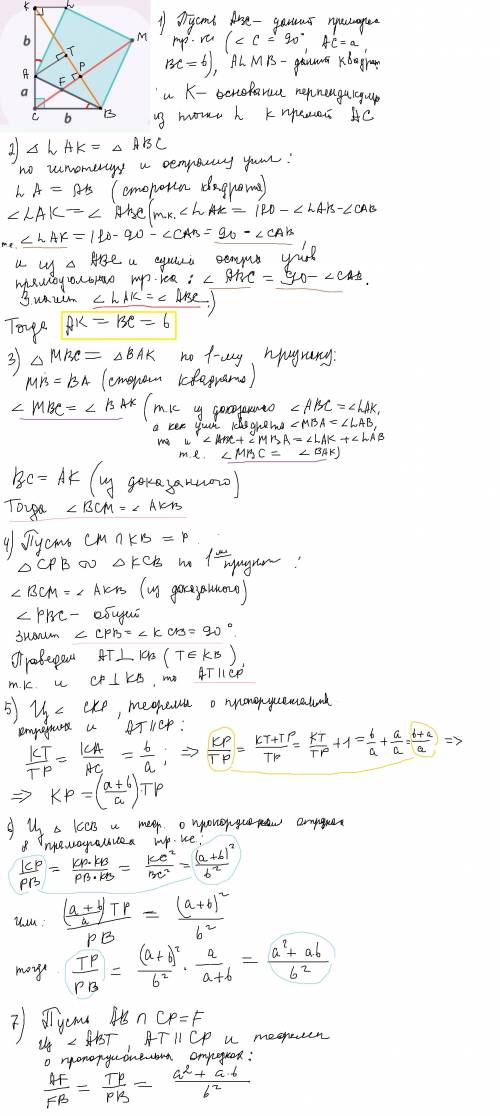 K L M T P F A C B b a b
1) Пусть ABC – данный прямоуг.
тр-к (∠C = 90°, AC = a,
BC = b), ALMB – данный квадрат
и K – основание перпендикуляра
из точки L к прямой AC
2) △ LAK = △ ABC
по гипотенузе и острому углу:
LA = AB (стороны квадрата)
∠LAK = ∠ABC (т.к. ∠LAK = 180 - ∠LAB - ∠CAB
т.е. ∠LAK = 180 - 90 - ∠CAB = 90 - ∠CAB
и из △ ABC и суммы острых углов
прямоугольного тр-ка: ∠ABC = 90 - ∠CAB.
Значит ∠LAK = ∠ABC.)
Тогда AK = BC = b
3) △ MBC = △ BAK по 1-му признаку:
MB = BA (стороны квадрата)
∠MBC = ∠BAK (т.к. из доказанного ∠ABC = ∠LAK,
а как углы квадрата ∠MBA = ∠LAB,
то и ∠ABC + ∠MBA = ∠LAK + ∠LAB
т.е. ∠MBC = ∠BAK)
BC = AK (из доказанного)
Тогда ∠BCM = ∠AKB
4) Пусть CM ∩ KB = P.
△ CPB ∾ △ KCB по 1 признаку:
∠BCM = ∠AKB (из доказанного)
∠PBC – общий
Значит ∠CPB = ∠KCB = 90°.
Проведем AT ⊥ KB (T ∈ KB),
т.к. и CP ⊥ KB, то AT ∥ CP
5) Из ∠ CKP, теоремы о пропорциональных
отрезках и AT ∥ CP:
KT/TP = KA/AC = b/a; ⇒ KP/TP = (KT+TP)/TP = KT/TP + 1 = b/a + a/a = (b+a)/a ⇒
⇒ KP = ((a+b)/a)·TP
6) Из △ KCB и теор. о пропорциональн отрезках
в прямоугольном тр-ке:
KP/PB = KP·KB/PB·KB = KC²/BC² = (a+b)²/b²
или: ((a+b)/a)TP/PB = (a+b)²/b²
тогда TP/PB = (a+b)²/b² · a/(a+b) = (a²+ab)/b²
7) Пусть AB ∩ CP = F
Из ∠ ABT, AT ∥ CP и теоремы
о пропорциональн отрезках:
AF/FB = TP/PB = (a²+a·b)/b²